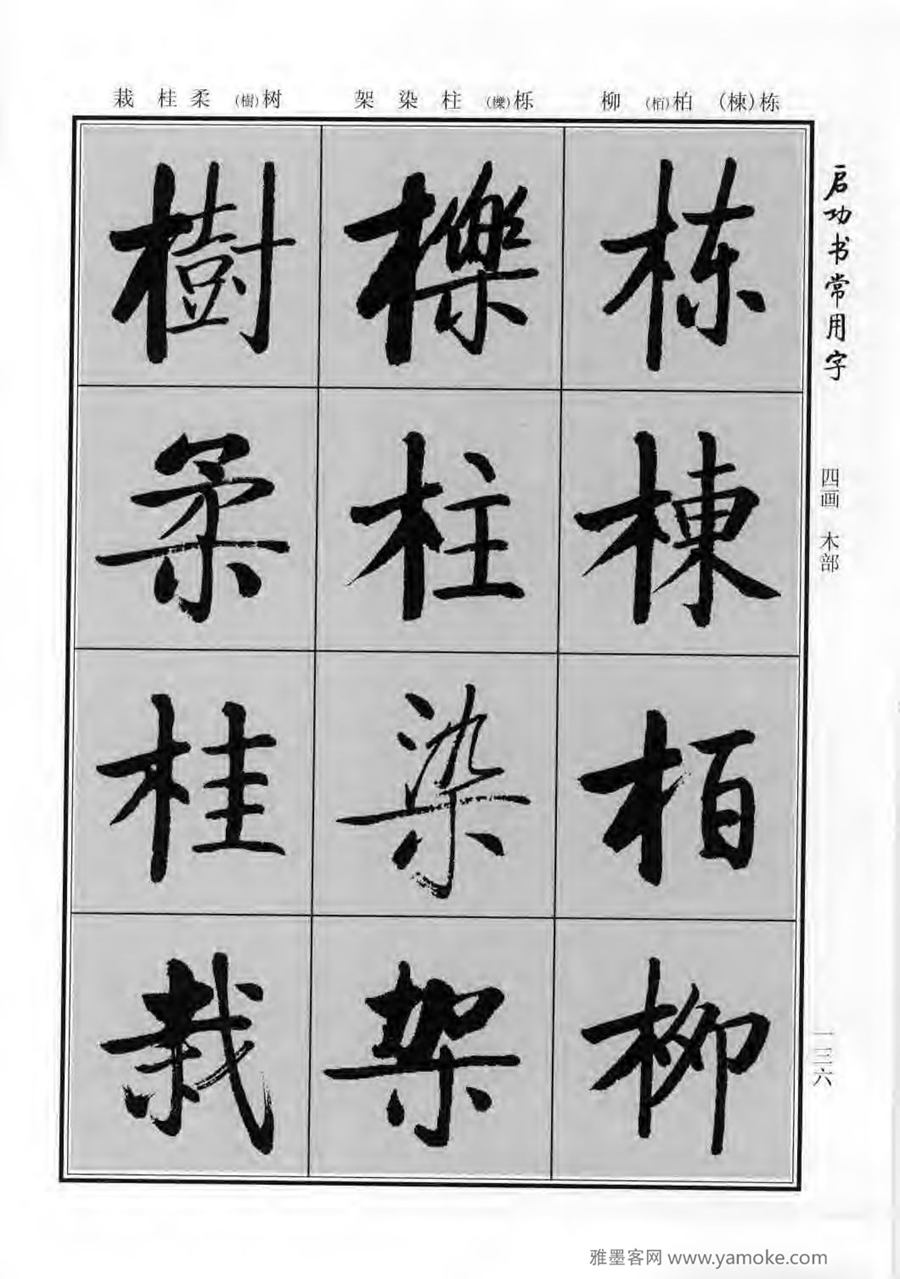 栽 桂 柔 (樹)树 架 染 柱 (櫟)栎 柳 (栢)柏 (棟)栋
启功书常用字
四画 木部
一三六
栋
棟
栢
柳
櫟
柱
染
架
樹
柔
桂
栽
雅墨客网 www.yamoke.com